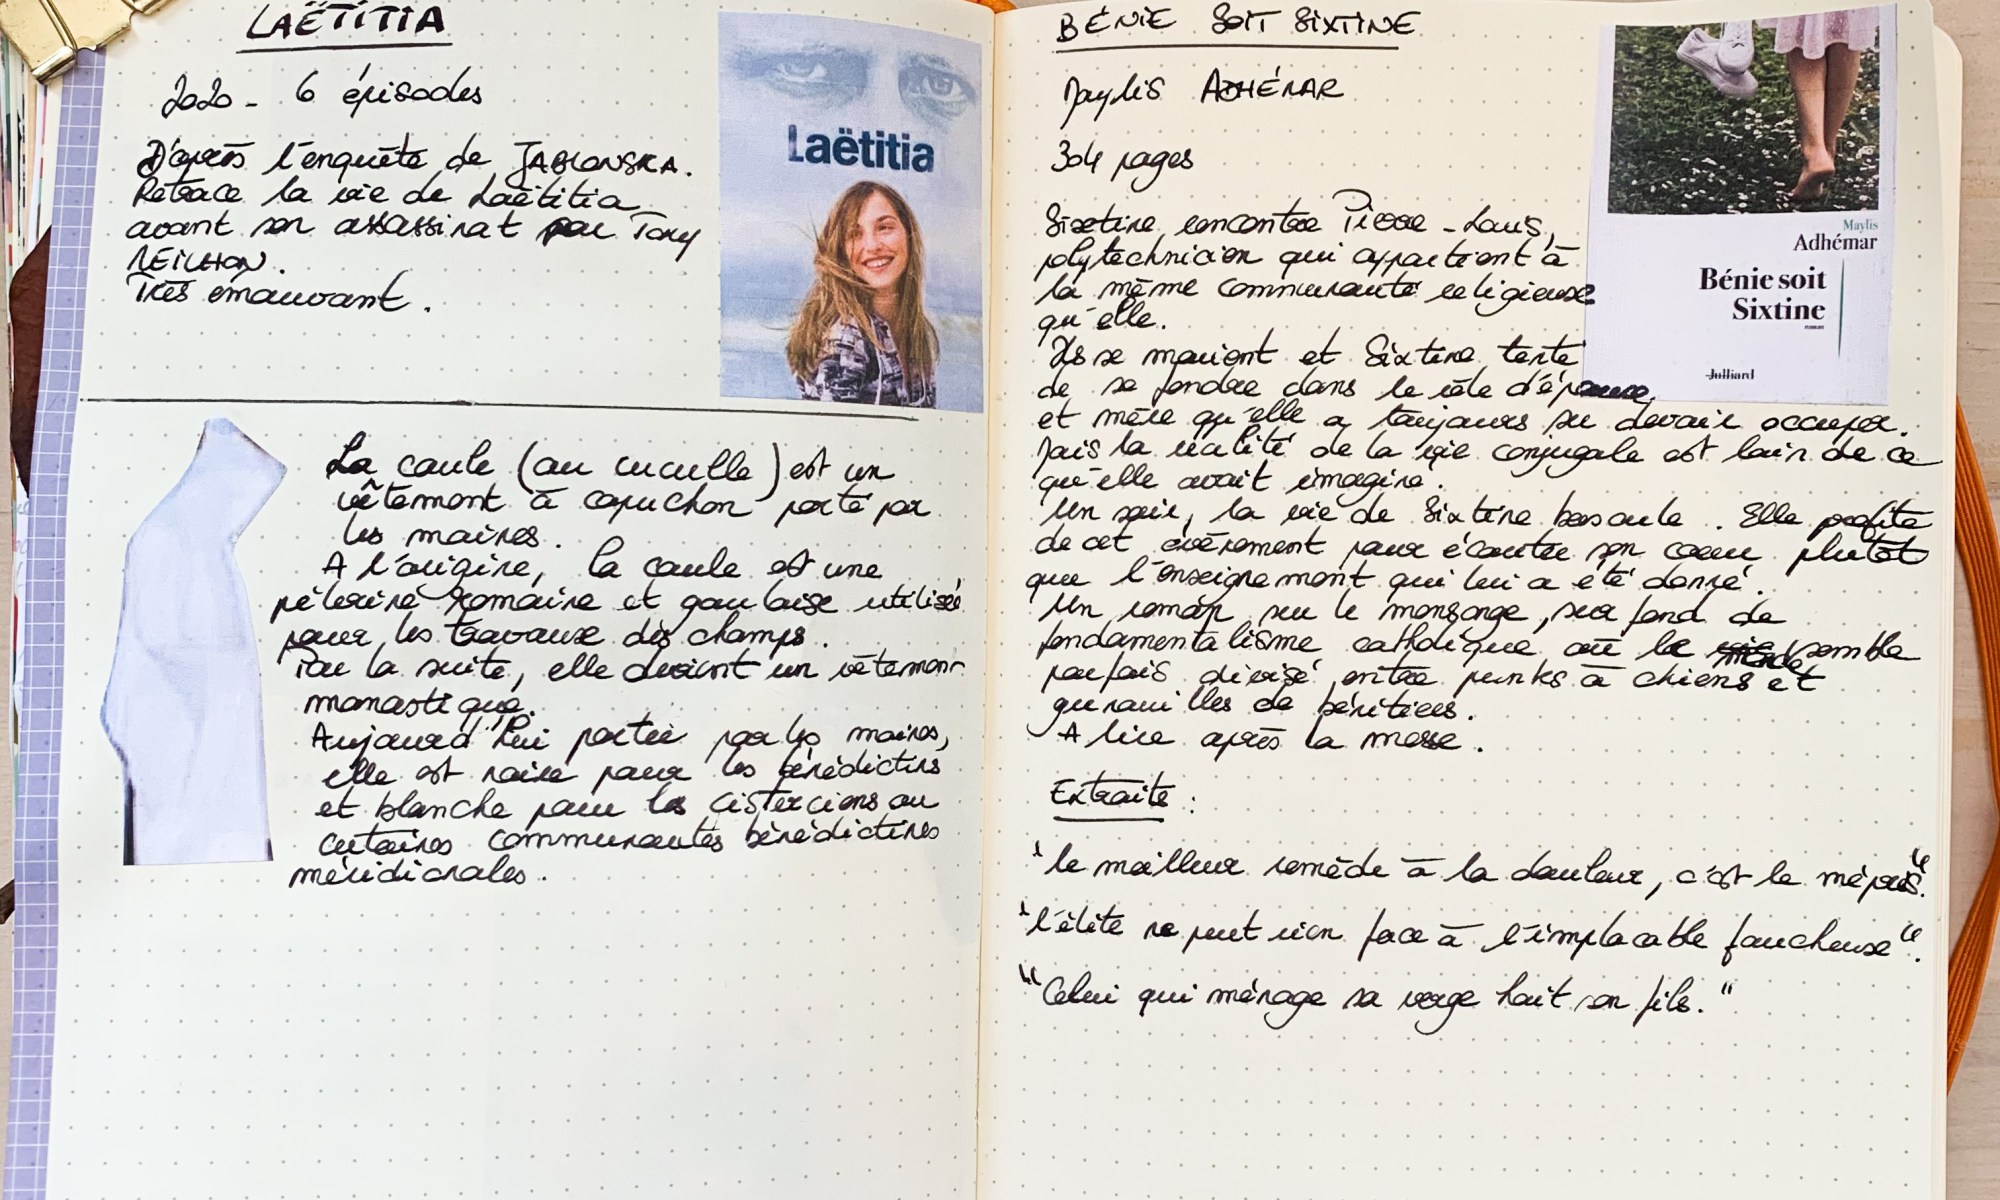 LAËTITIA
2020 - 6 épisodes
D'après l'enquête de JABLONSKA.
Retrace la vie de Laëtitia
avant son assassinat par Tony
MEILHON.
Très émouvant.
Laëtitia
La coule (ou cuculle) est un
vêtement à capuchon porté par
les moines.
A l'origine, la coule est une
pèlerine romaine et gauloise utilisée
pour les travaux des champs.
Par la suite, elle devient un vêtement
monastique.
Aujourd'hui portée par les moines,
elle est noire pour les bénédictins
et blanche pour les cisterciens ou
certaines communautés bénédictines
méridionales.
BÉNIE SOIT SIXTINE
Maylis ADHÉMAR
304 pages
Sixtine rencontre Pierre-Louis,
polytechnicien qui appartient à
la même communauté religieuse
qu'elle.
Ils se marient et Sixtine tente
de se fondre dans le rôle d'épouse
et mère qu'elle a toujours su devoir occuper.
Mais la réalité de la vie conjugale est loin de ce
qu'elle avait imaginé.
Un soir, la vie de Sixtine bascule. Elle profite
de cet évènement pour écouter son coeur plutôt
que l'enseignement qui lui a été donné.
Un roman sur le mensonge, sur fond de
fondamentalisme catholique où le monde semble
parfois divisé entre punks à chiens et
grenouilles de bénitiers.
A lire après la messe.
Extraits :
"le meilleur remède à la douleur, c'est le mépris".
"l'élite ne peut rien face à l'implacable faucheuse".
"Celui qui ménage sa verge hait son fils."
Maylis
Adhémar
Bénie soit
Sixtine
roman
Julliard